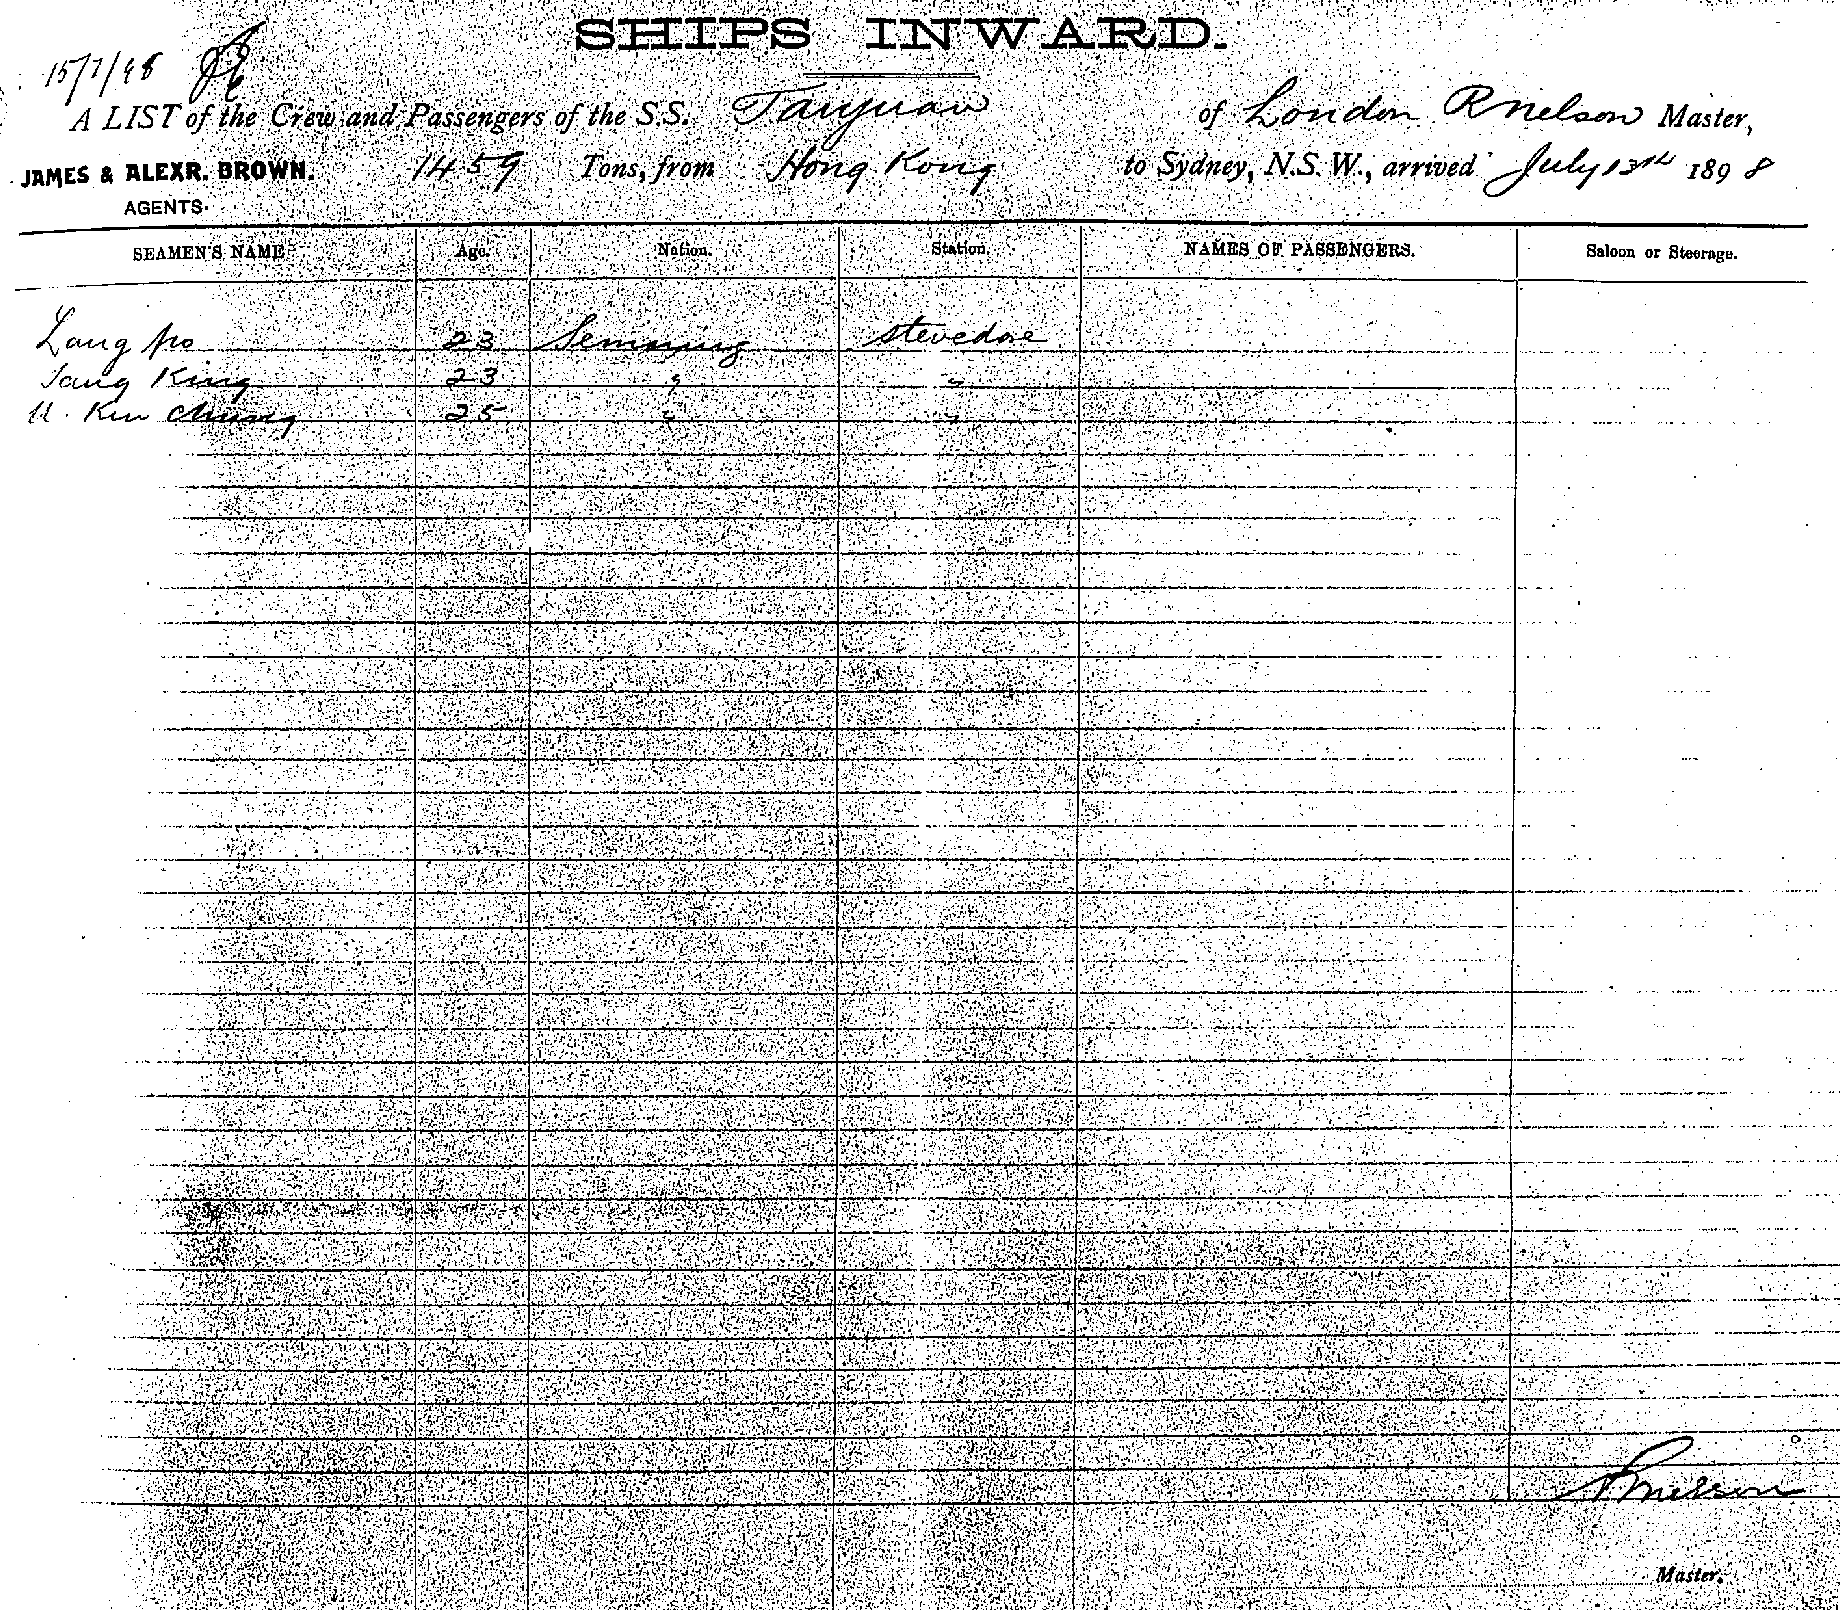 SHIPS INWARD.
15/7/98
A LIST of the Crew and Passengers of the S.S. Taiyuan of London R Nelson Master,
JAMES & ALEXR. BROWN. 1459 Tons, from Hong Kong to Sydney, N.S.W., arrived July 13th 1898
AGENTS.
SEAMEN'S NAME Age. Nation. Station. NAMES OF PASSENGERS. Saloon or Steerage.
23 stevedore
Tang King 23 " "
Chung 25 " "
R Nelson
Master.